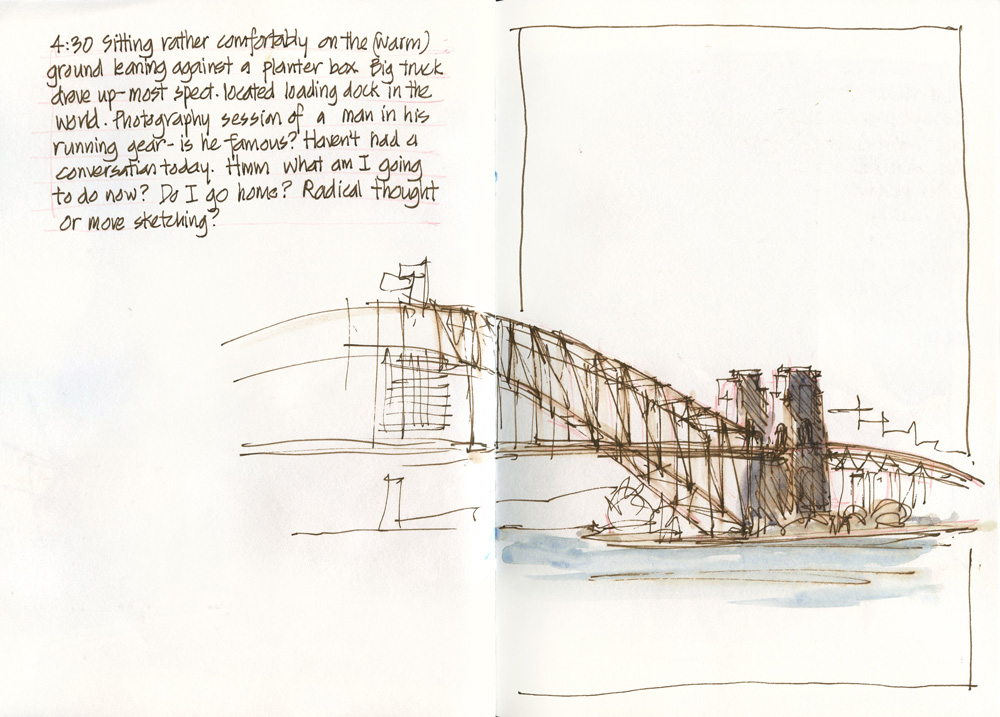 4:30 Sitting rather comfortably on the (warm)
ground leaning against a planter box. Big truck
drove up-most spect. located loading dock in the
world. Photography session of a man in his
running gear- is he famous? Haven't had a
conversation today. Hmm what am I going
to do now? Do I go home? Radical thought
or more sketching?